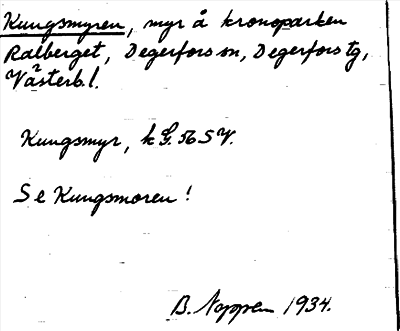 Kungsmyren, myr å kronoparken
Ralberget, Degerfors sn, Degerfors tg,
Västerb. l.
Kungsmyr, k G. 56 SV.
Se Kungsmoren!
B. 1934.